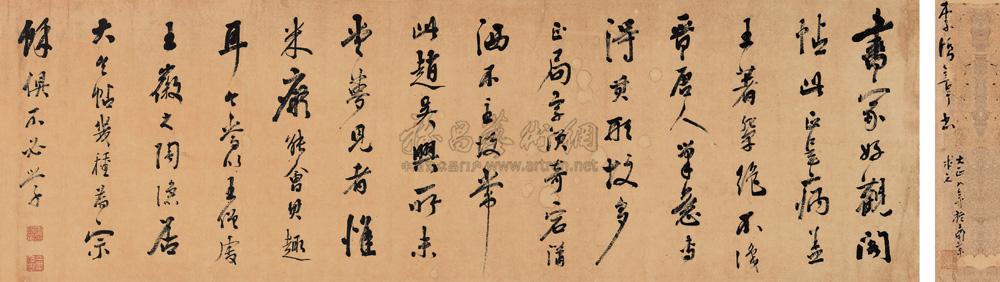 書家好觀閣
帖此正是病蓋
王著輩絶不識
晉唐人筆意專
得其形故多
正局字須奇宕瀟
洒不主故常
此趙吳興所未
嘗夢見者惟
米癡能會其趣
耳今當以王僧虔
王徽之陶隱居
大令帖幾種為宗
餘俱不必學
大正八年於南京
求之
雅昌藝術網
www.artron.net